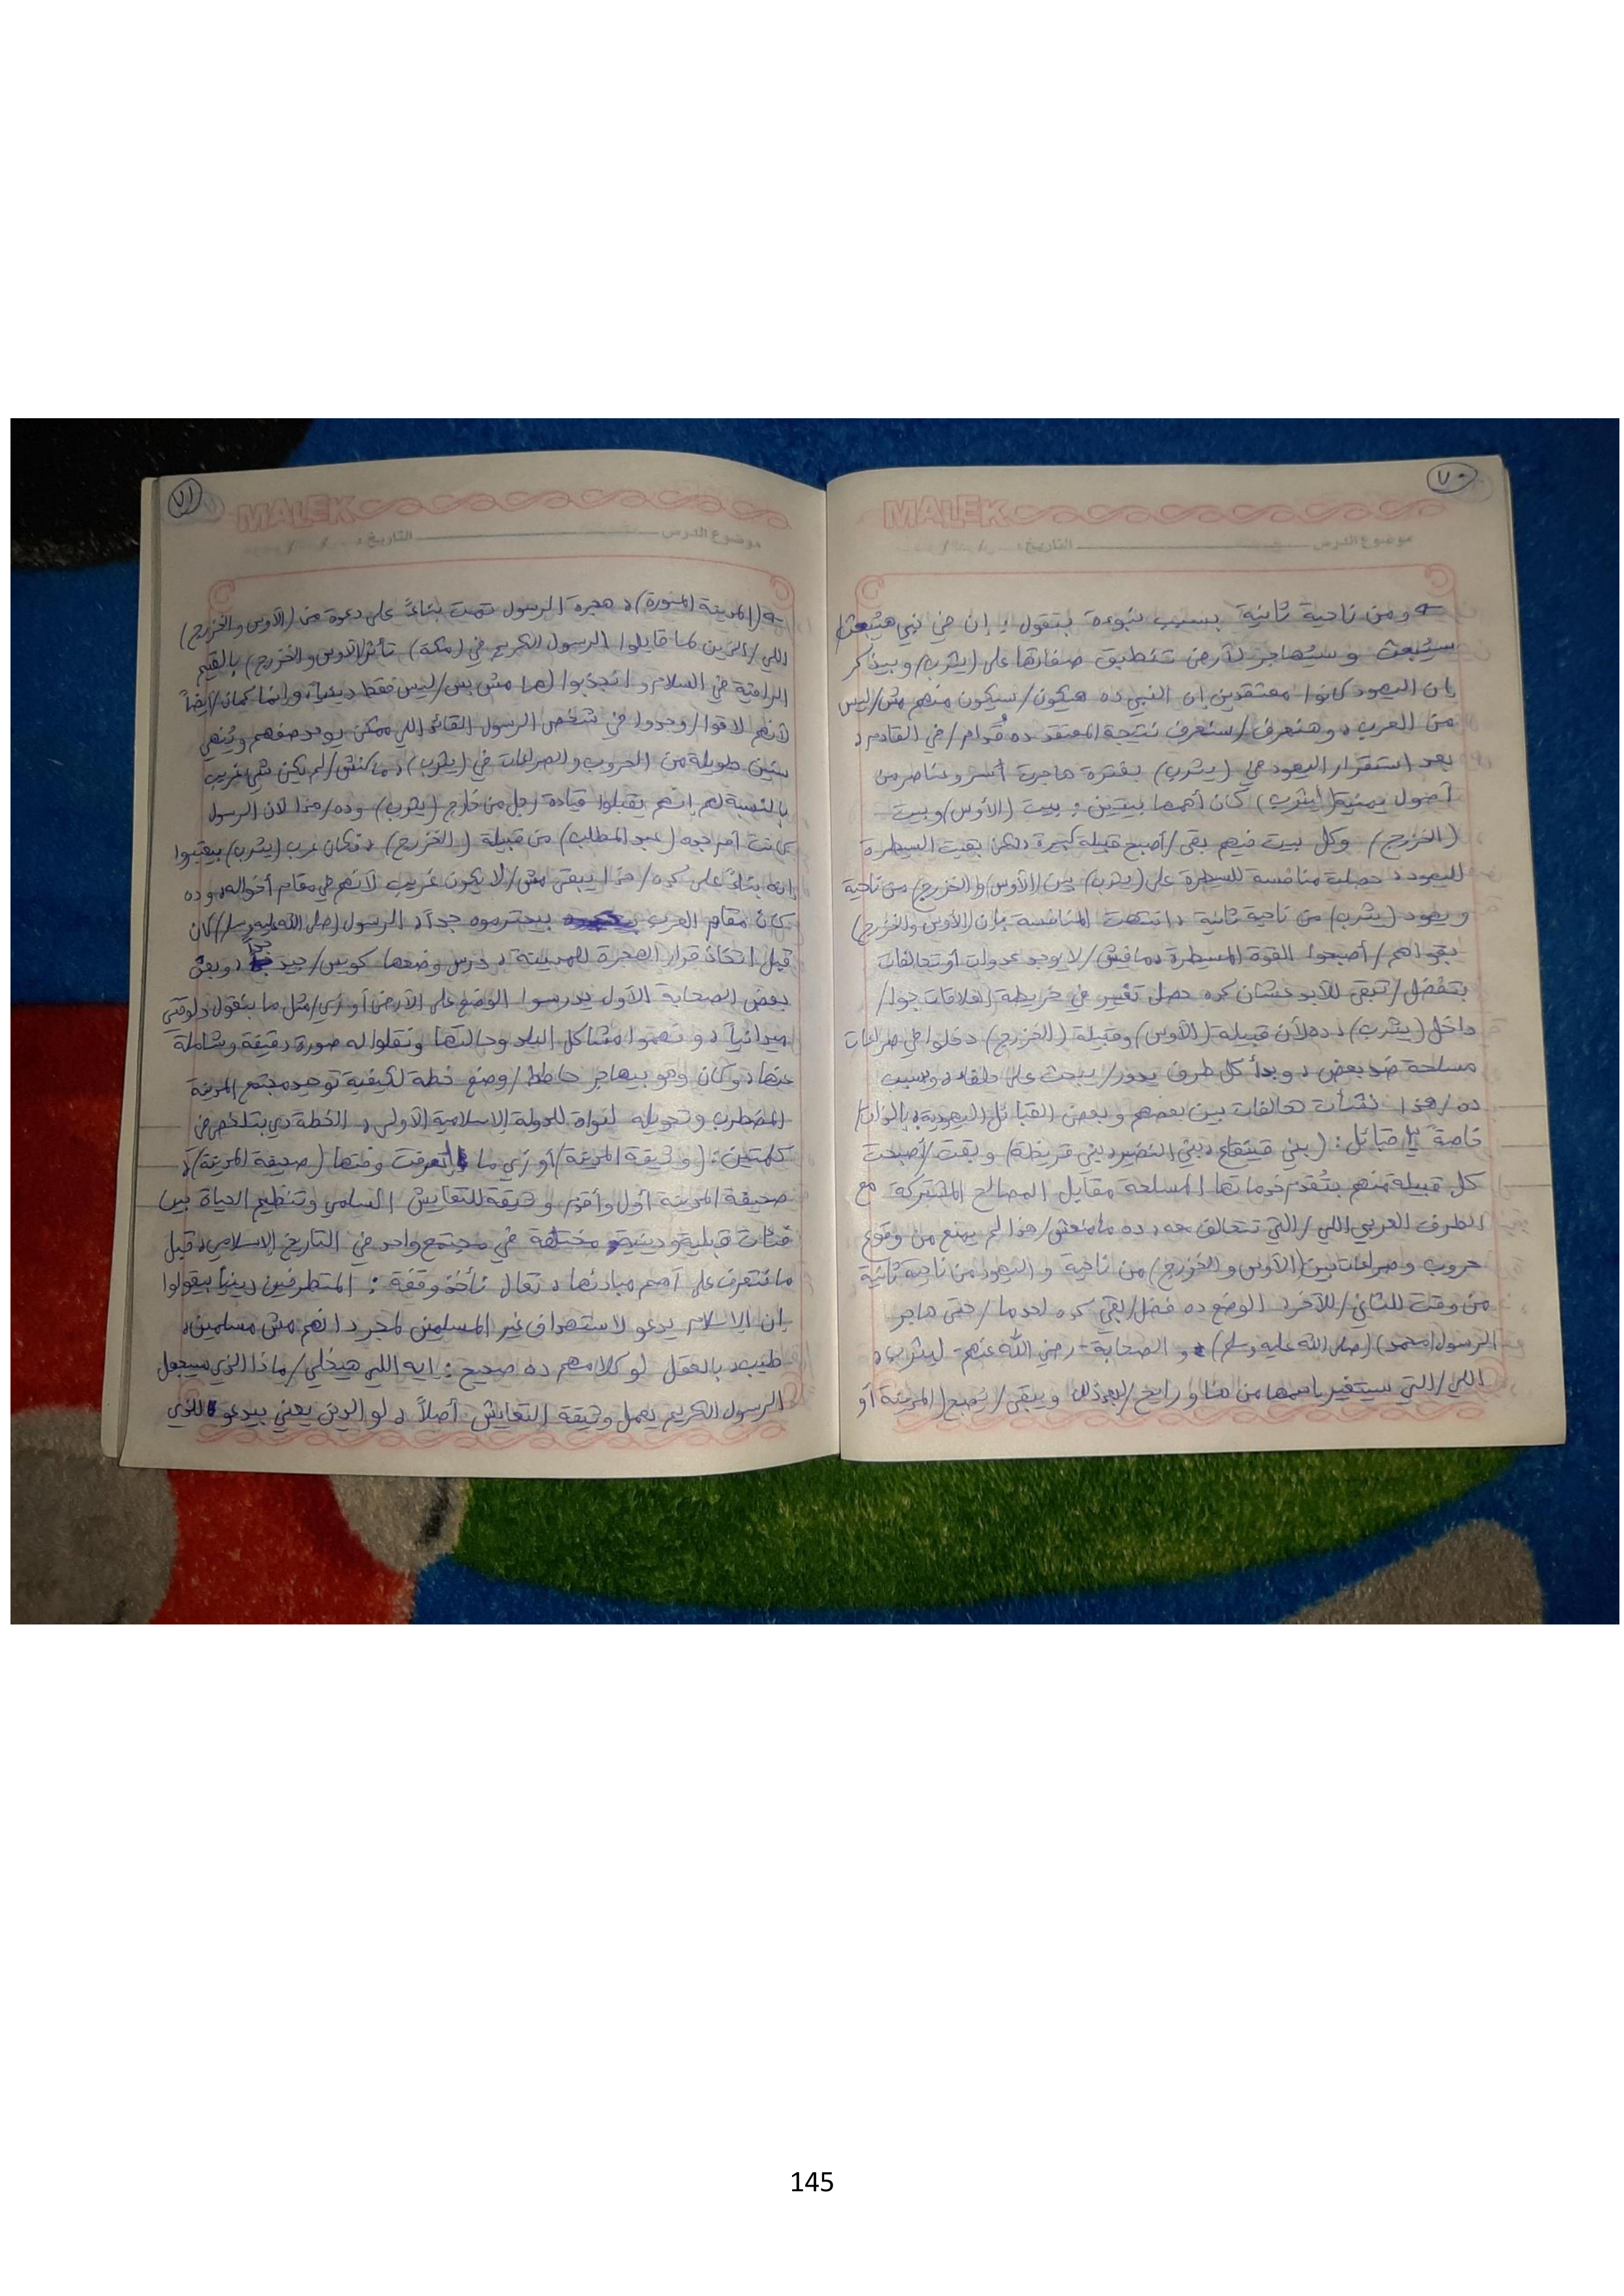 ٧٠
MALEK
موضوع الدرس التاريخ : / /
ومن ناحية ثانية بسبب نبوءة بتقول : إن في نبي هيتبعث/
سيُبعث وسيُهاجر لأرض تنطبق صفاتها على (يثرب) وبيذكر
بإن اليهود كانوا معتقدين إن النبي ده هيكون/سيكون منهم مش/ليس
من العرب، وهنعرف/سنعرف نتيجة المعتقد ده قُدام/في القادم،
بعد استقرار اليهود في (يثرب) بفترة هاجرت أسر وعناصر من
أصول يمنية (ليثرب) كان أهمها بيتين : بيت (الأوس) وبيت
(الخزرج) وكل بيت فيهم بقى/أصبح قبيلة كبيرة، لكن بقيت السيطرة
لليهود، حصلت منافسة للسيطرة على (يثرب) بين (الأوس) و(الخزرج) من ناحية
ويهود (يثرب) من ناحية ثانية، انتهت المنافسة بإن (الأوس والخزرج)
بقوا هم/أصبحوا القوة المسيطرة، مافيش/لا يوجد عداوات أو تحالفات
بتفضل/تبقى للأبد عشان كده حصل تغيير في خريطة العلاقات جوا/
داخل (يثرب)، ده لأن قبيلة (الأوس) وقبيلة (الخزرج) دخلوا في صراعات
مسلحة ضد بعض، وبدأ كل طرف يدور/يبحث على حلفاء، وبسبب
ده/هذا نشأت تحالفات بين بعضهم وبعض القبائل اليهودية، بالذات/
خاصةً ٣ قبائل : (بني قينقاع، بني النضير، بني قريظة) وبقت/أصبحت
كل قبيلة منهم بتُقدم خدماتها المسلحة مقابل المصالح المشتركة مع
الطرف العربي اللي/التي تتحالف معه، ده مامنعش/هذا لم يمنع من وقوع
حروب وصراعات بين (الأوس والخزرج) من ناحية واليهود من ناحية ثانية
من وقت للثاني/للآخر، الوضع ده فضل/بقي كده لحد ما/حتى هاجر
الرسول (محمد) (صلى الله عليه وسلم) و الصحابة - رضي الله عنهم - ليثرب،
اللي/التي سيتغير اسمها من هنا ورايح/بعد ذلك ويبقى/يُصبح (المدينة أو
٧١
MALEK
موضوع الدرس التاريخ : / /
(المدينة المنورة)، هجرة الرسول تمت بناءً على دعوة من (الأوس والخزرج)
اللي/الذين لما قابلوا الرسول الكريم في (مكة) تأثر (الأوس والخزرج) بالقيم
الراقية في السلام وانجذبوا لها مش بس/ليس فقط دينياً، وإنما كمان/أيضاً
لأنهم لاقوا/وجدوا في شخص الرسول القائد اللي ممكن يوحد صفهم ويُنهي
سنين طويلة من الحروب والصراعات في (يثرب)، ماكنش/لم يكن شيء غريب
بالنسبة لهم إنهم يقبلوا قيادة رجل من خارج (يثرب) وده/هذا لأن الرسول
كانت أم جده (عبد المطلب) من قبيلة (الخزرج)، فكان عرب (يثرب) بيعتبروا
إنه بناءً على كده/هذا يبقى مش/لا يكون غريب لأنهم في مقام أخواله، وده
كان مقام العرب بيحترموه جداً، الرسول (صلى الله عليه وسلم) كان
قبل اتخاذ قرار الهجرة للمدينة، درس وضعها كويس/جيداً، وبعت
بعض الصحابة الأول يدرسوا الوضع على الأرض أو زي/مثل ما بنقول دلوقتي
ميدانياً، وفهموا مشاكل البلد وحالتها ونقلوا له صورة دقيقة وشاملة
عنها، وكان وهو بيهاجر حاطط/وضع خطة لكيفية توحيد مجتمع المدينة
المضطرب وتحويله لنواة للدولة الإسلامية الأولى، الخطة دي بتتلخص في
كلمتين : (وثيقة المدينة) أو زي ما اتعرفت وقتها (صحيفة المدينة)،
صحيفة المدينة أول وأقدم وثيقة للتعايش السلمي وتنظيم الحياة بين
فئات قبلية ودينية مختلفة في مجتمع واحد في التاريخ الإسلامي، قبل
ما نتعرف على أهم مبادئها، تعال نأخذ وقفة : المتطرفين دينياً بيقولوا
إن الإسلام يدعو لاستهداف غير المسلمين لمجرد إنهم مش مسلمين،
طيب، بالعقل لو كلامهم ده صحيح : إيه اللي هيخلي/ماذا الذي سيجعل
الرسول الكريم يعمل وثيقة التعايش أصلاً، لو الدين يعني بيدعو للذي
145